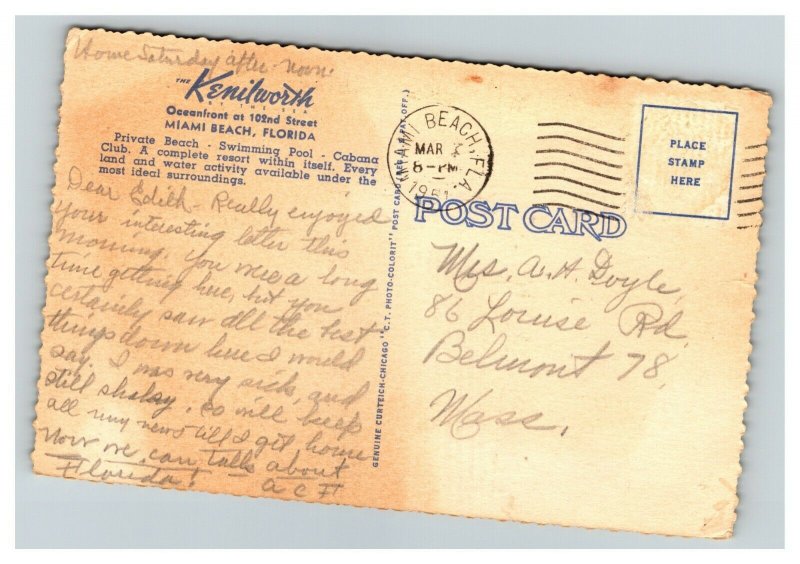 Home Saturday after-noon.
THE
Kenilworth
BY THE SEA
Oceanfront at 102nd Street
MIAMI BEACH, FLORIDA
Private Beach - Swimming Pool - Cabana
Club. A complete resort within itself. Every
land and water activity available under the
most ideal surroundings.
Dear Edith - Really enjoyed
your interesting letter this
morning. You were a long
time getting here, but you
certainly saw all the best
things down here I would
say. I was very sick, and
still shaky. So will keep
all my news till I get home
Now we can talk about
Florida! A C F
GENUINE CURTEICH-CHICAGO "C.T. PHOTO-COLORIT" POST CARD (REG. U.S. PAT. OFF.)
MIAMI BEACH, FLA.
MAR
8-PM
1951
PLACE
STAMP
HERE
POST CARD
Mrs. A. H. Doyle,
86 Louise Rd.
Belmont 78,
Mass.